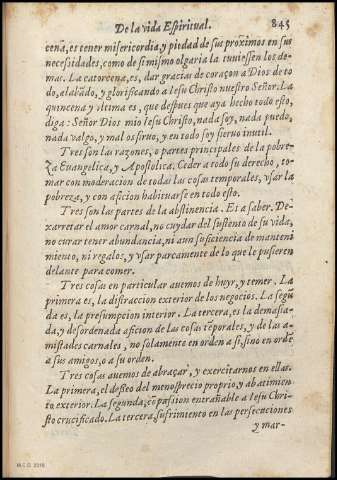 De la vida Espiritual. 845
cena, es tener misericordia, y piedad de sus proximos en sus
necesidades, como de si mismo olgaria la tuuiessen los de-
mas. La catorcena, es, dar gracias de coraçon a Dios de to
do, alabãdo, y glorificando a Iesu Christo nuestro Señor. La
quincena y vltima es, que despues que aya hecho todo esto,
diga: Señor Dios mio Iesu Christo, nada soy, nada puedo,
nada valgo, y mal os siruo, y en todo soy sieruo inutil.
Tres son las razones, o partes principales de la pobre-
za Euangelica, y Apostolica. Ceder a todo su derecho, to-
mar con moderacion de todas las cosas temporales, vsar la
pobreza, y con aficion habituarse en todo esto.
Tres son las partes de la abstinencia. Et a saber. De-
xarretar el amor carnal, no cuydar del sustento de su vida,
no curar tener abundancia, ni aun suficiencia de manteni
miento, ni regalos, y vsar parcamente de lo que le pusieren
delante para comer.
Tres cosas en particular auemos de huyr, y temer. La
primera es, la distraccion exterior de los negocios. La segũ
da es, la presumpcion interior. La tercera, es la demasia-
da, y desordenada aficion de las cosas tẽporales, y de las a-
mistades carnales, no solamente en orden a si, sino en ordẽ
a sus amigos, o a su orden.
Tres cosas auemos de abraçar, y exercitarnos en ellas.
La primera, el desseo del menosprecio proprio, y abatimien
to exterior. La segunda, cõpassion entrañable a Iesu Chri-
sto crucificado. La tercera, sufrimiento en las persecuciones
y mar-
M.C.D. 2018